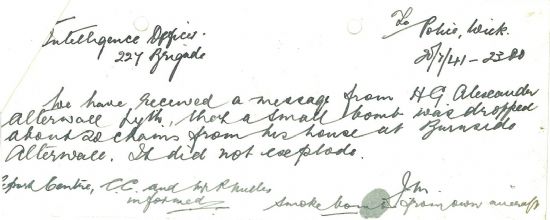 Intelligence Officer.
227 Brigade
To Police, Wick.
20/7/41 - 2300
We have received a message from H.G. Alexander
Alterwall Lyth, that a small bomb was dropped
about 20 chains from his house at Burnside
Alterwall. It did not explode.
Centre, C.C. and
informed
J.M.
Smoke bomb from own aircraft